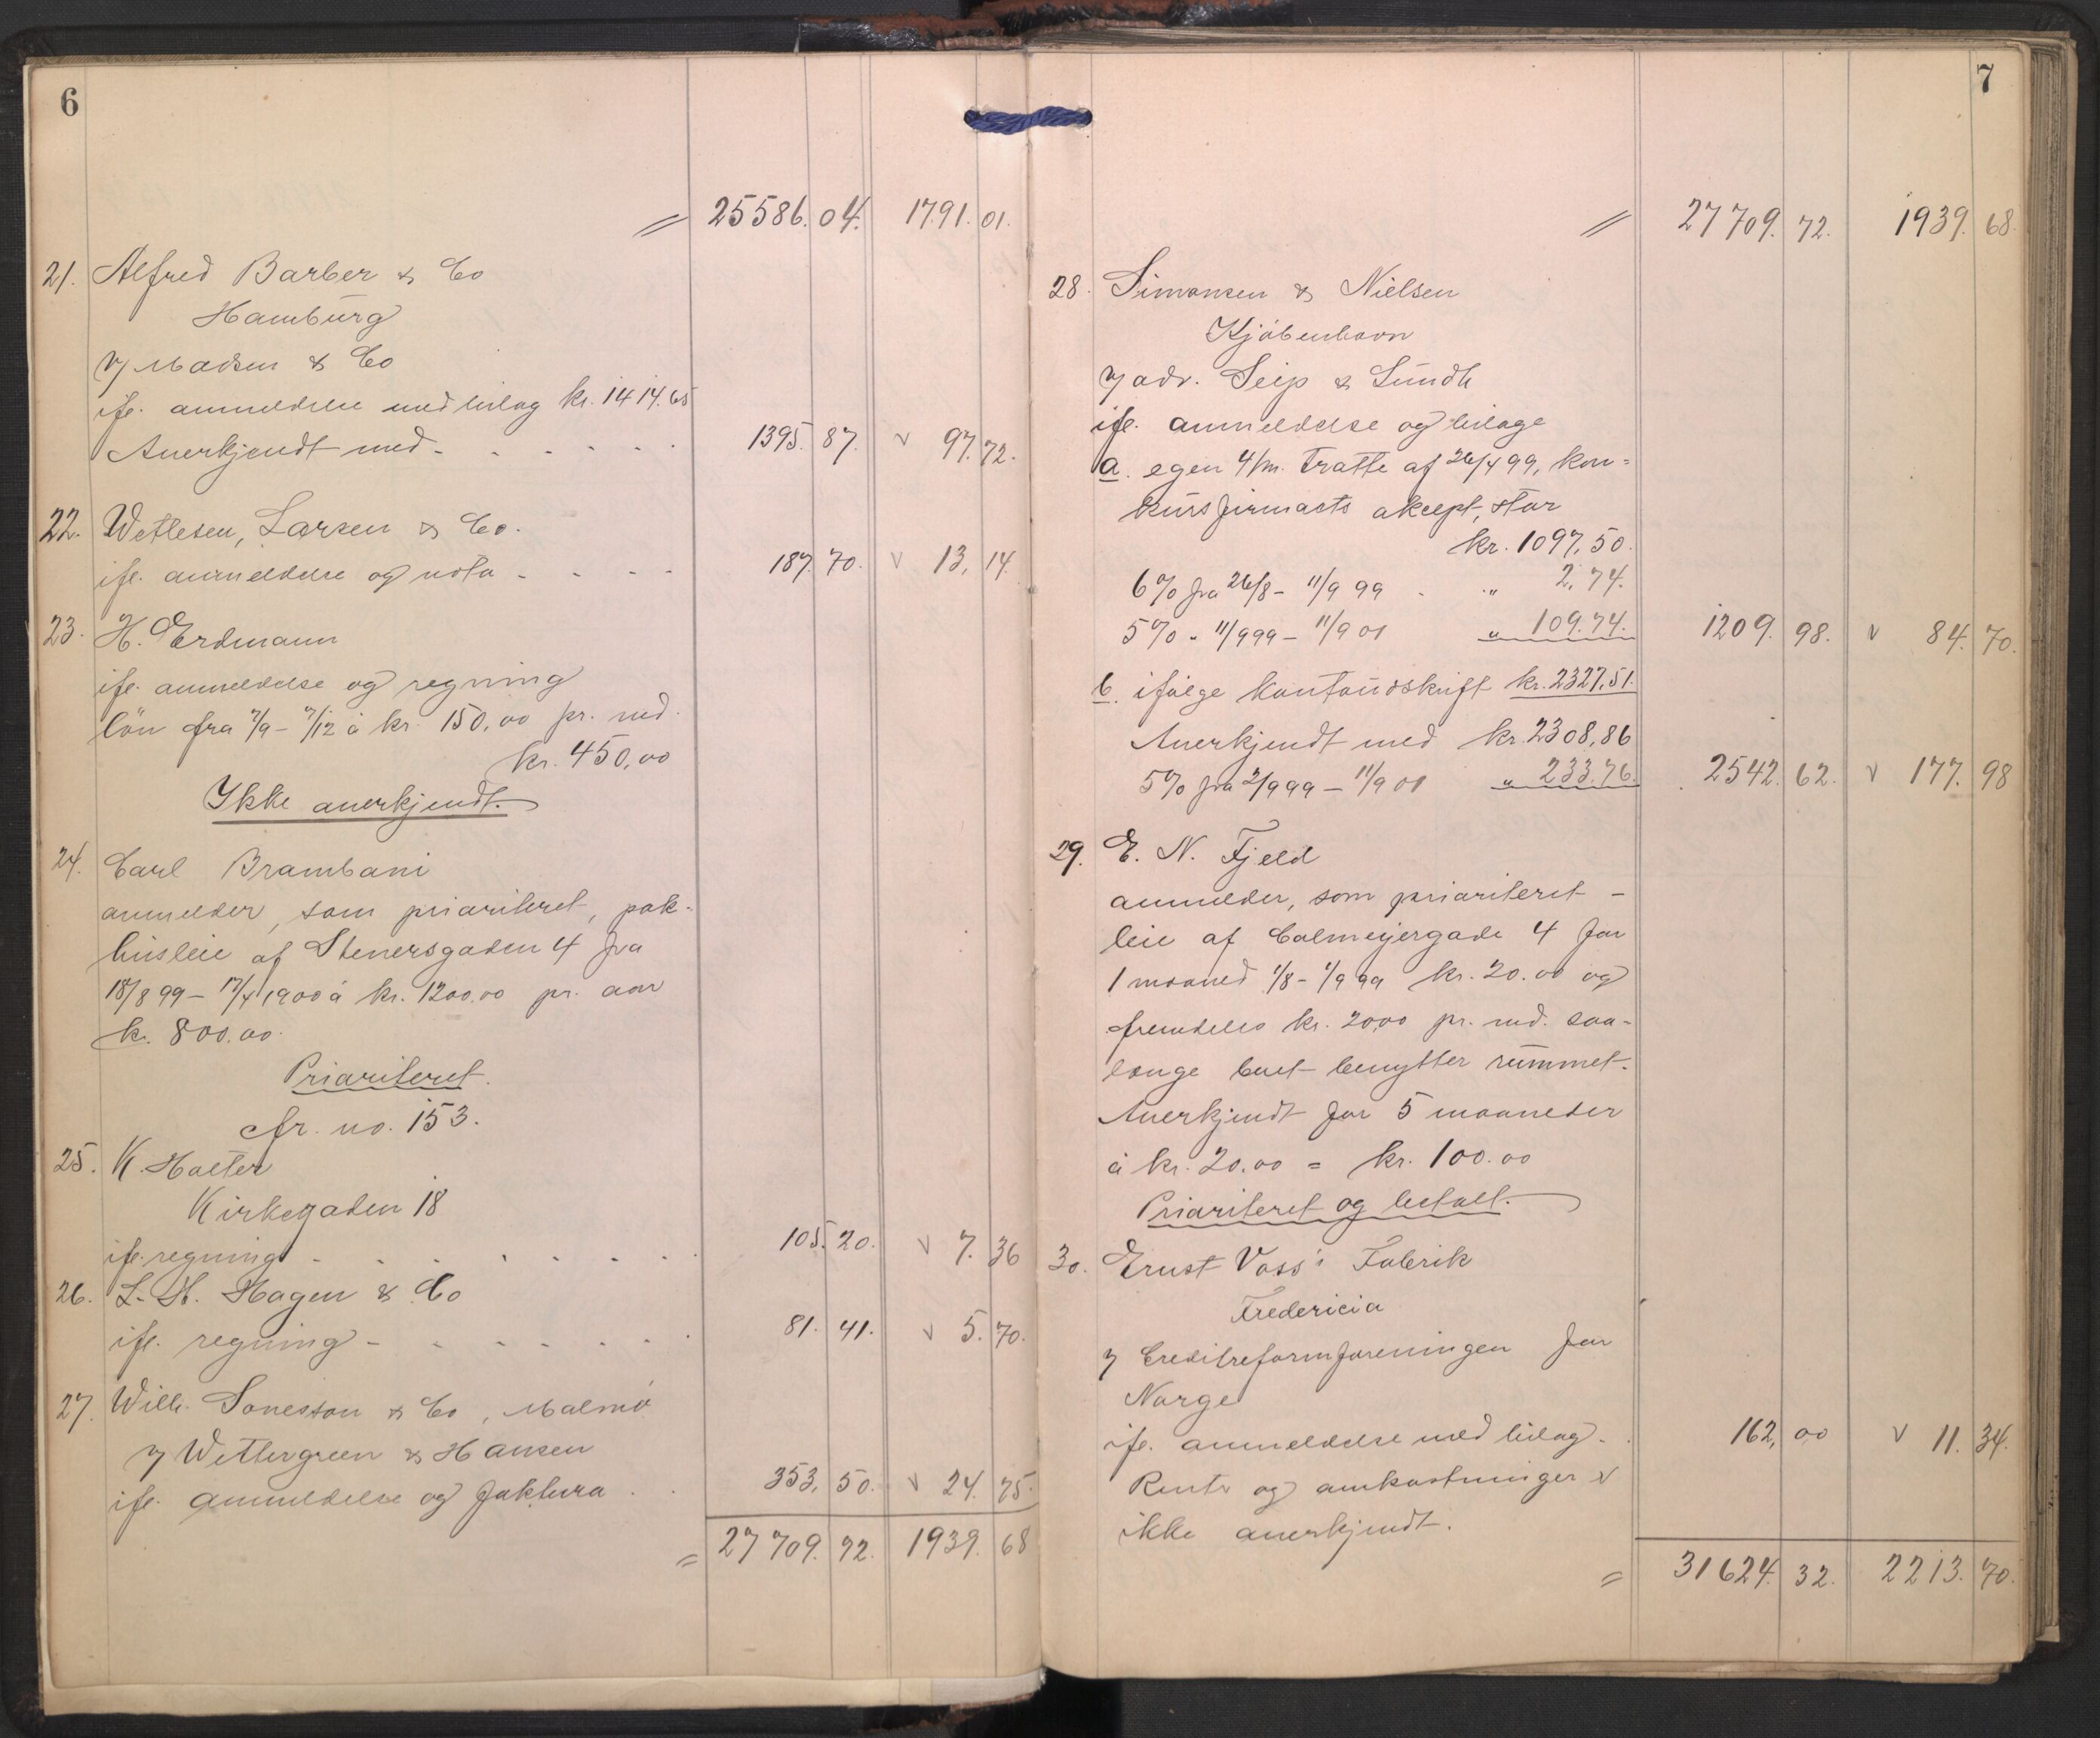 6
= 25586. 04. 1791. 01.
21. Alfred Barber & Co
Hamburg
v/ Madsen & Co
ifl. anmeldelse med bilag kr. 1414.65
Anerkjendt med - - - - - - 1395. 87. v 97. 72.
22. Wetlesen, Larsen & Co.
ifl. anmeldelse og nota - - - - 187. 70. v 13. 14.
23. H. Erdmann
ifl. anmeldelse og regning
lön fra 7/9 - 7/12 à kr. 150,00 pr. md.
kr. 450,00
Ikke anerkjendt.
24. Carl Brambani
anmelder, som prioriteret, pak-
husleie af Stenersgaden 4 fra
18/8 99 - 17/4 1900 à kr. 1200.00 pr. aar
kr. 800.00.
Prioriteret.
cfr. no. 153.
25. K. Holter
Kirkegaden 18
ifl. regning - - - - - - - 105. 20. v 7. 36
26. L. H. Hagen & Co
ifl. regning - - - - - - - 81. 41. v 5. 70.
27. Wilh. Sonesson & Co, Malmö
v/ Wettergreen & Hansen
ifl. anmeldelse og faktura . . 353, 50. v 24. 75.
= 27709. 72. 1939. 68
7
= 27709. 72. 1939. 68.
28. Simonsen & Nielsen
Kjöbenhavn
v/ adv. Seip & Lundh
ifl. anmeldelse og bilage
a. egen 4/m. Tratte af 26/4 99, kon=
kursfirmaets aksept, stor
kr. 1097,50.
6% fra 26/8 - 11/9 99 . „ 2,74.
5% „ 11/9 99 - 11/9 01 „ 109.74. 1209. 98. v 84. 70.
b. ifölge kontoudskrift kr. 2327,51.
Anerkjendt med kr. 2308,86
5% fra 2/9 99 - 11/9 01 „ 233.76. 2542. 62. v 177. 98
29. E. N. Fjeld
anmelder, som prioriteret -
leie af Calmeyergade 4 for
1 maaned 1/8 - 1/9 99 kr. 20.00 og
fremdeles kr. 20.00 pr. md. saa-
længe boet benytter rummet.
Anerkjendt for 5 maaneder
à kr. 20.00 = kr. 100.00
Prioriteret og betalt.
30. Ernst Voss' Fabrik
Fredericia
v/ Creditreformforeningen for
Norge
ifl. anmeldelse med bilag. . 162, 00 v 11. 34.
Rente og omkostninger v
ikke anerkjendt.
= 31624. 32. 2213. 70.